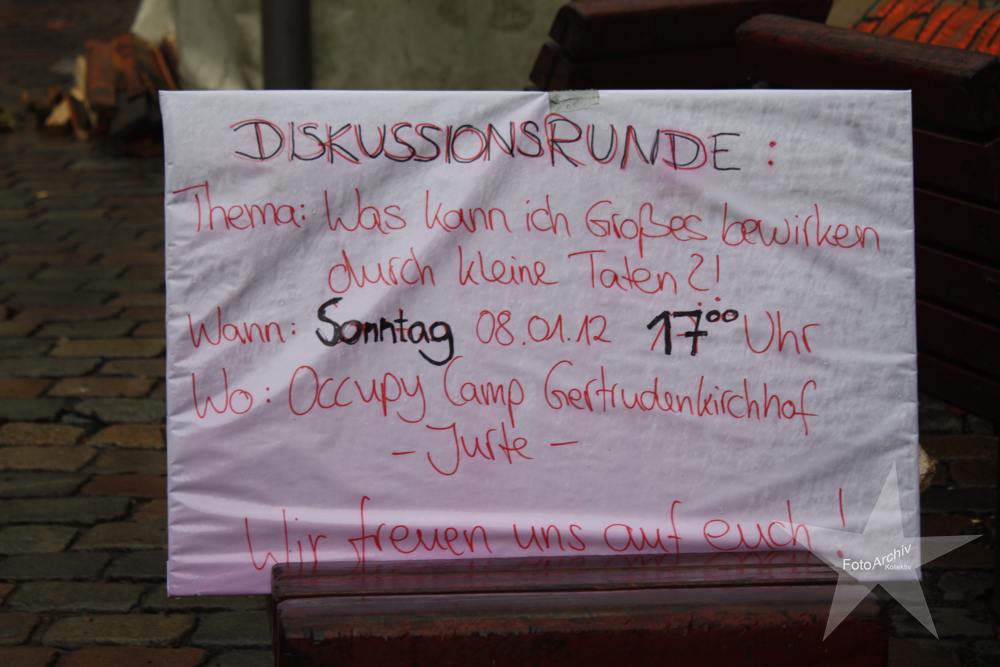 DISKUSSIONSRUNDE:
Thema: Was kann ich Großes bewirken
durch kleine Taten?!
Wann: Sonntag 08.01.12 17⁰⁰ Uhr
Wo: Occupy Camp Gertrudenkirchhof
- Jurte -
Wir freuen uns auf euch!
FotoArchiv
Kollektiv